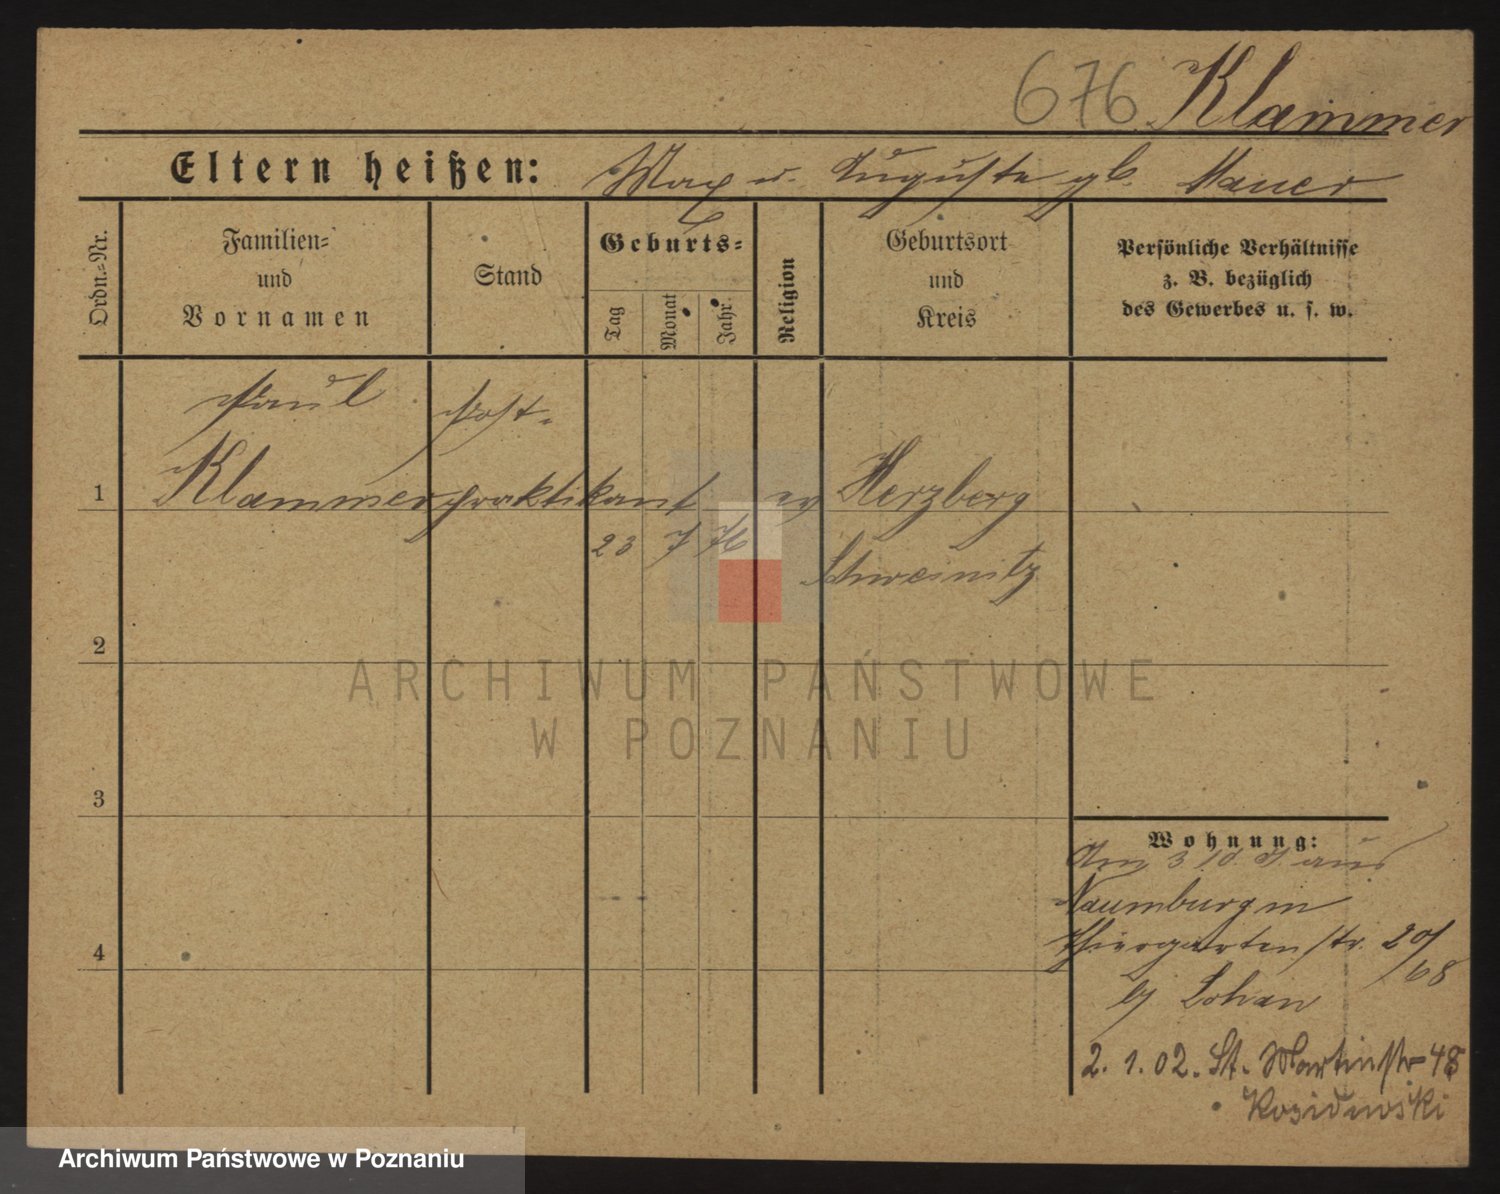 676 Klammer
Eltern heißen: Max u. Auguste gb. Mauer
Ordn.=Nr.
Familien=
und
Vornamen
Stand
Geburts=
Tag
Monat
Jahr.
Religion
Geburtsort
und
Kreis
Persönliche Verhältnisse
z. B. bezüglich
des Gewerbes u. s. w.
Paul Post-
1 Klammer praktikant ev Herzberg
23 7 76 Schweinitz
2
ARCHIWUM PAŃSTWOWE
W POZNANIU
3
Wohnung:
Am 3 10. aus
Naumburg in
Thiergartenstr. 20/
/68
by
4
2. 1. 02. St. Martinstr 48
Archiwum Państwowe w Poznaniu